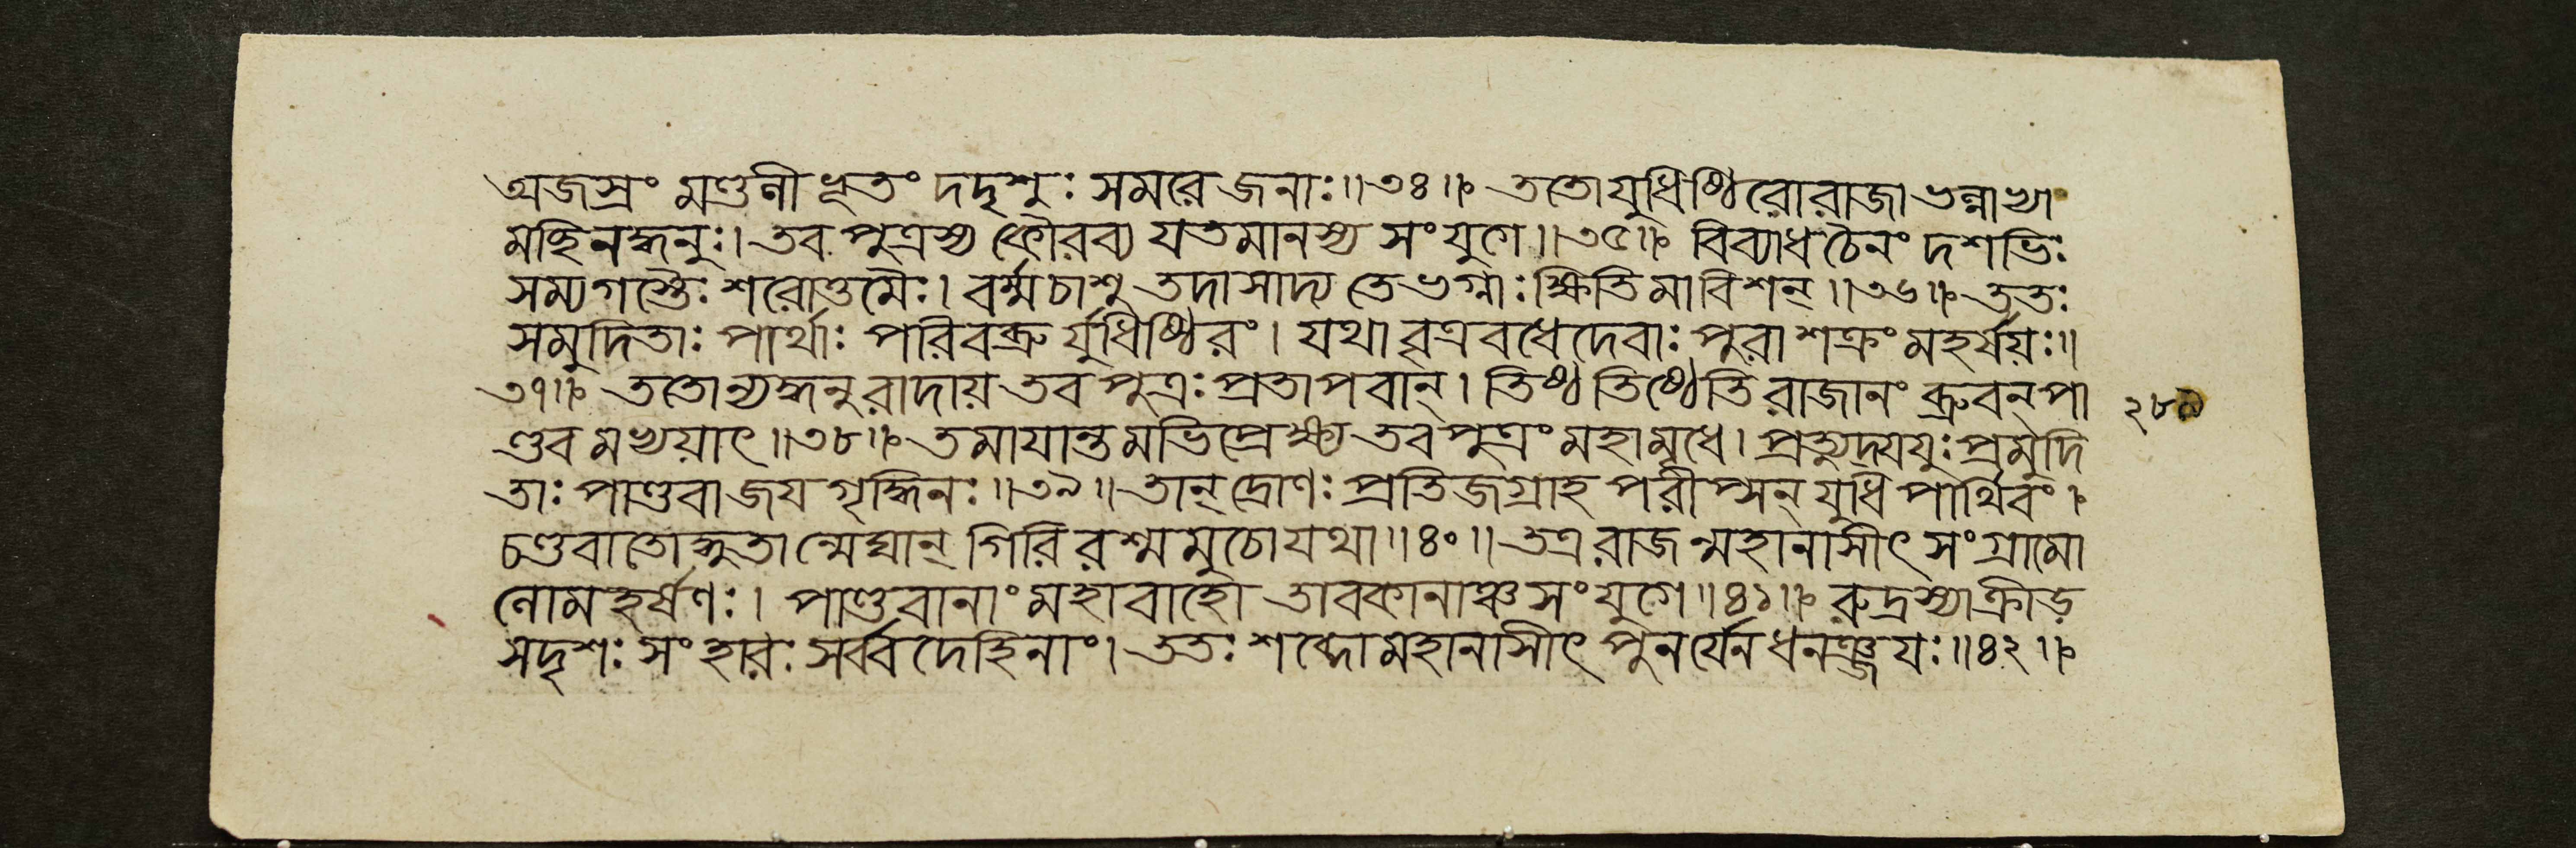 অজস্রং মণ্ডলীভূতং দদৃশুঃ সমরে জনাঃ॥৩৪॥ ততো যুধিষ্ঠিরো রাজা ভল্লাভ্যা
মচ্ছিনদ্ধনুঃ। তব পুত্রস্য কৌরব্য যতমানস্য সংযুগে॥৩৫॥ বিব্যাধ চৈনং দশভিঃ
সম্যগস্তৈঃ শরোত্তমৈঃ। বর্ম্ম চাশু তদাসাদ্য তে ভগ্নাঃ ক্ষিতিমাবিশন্॥৩৬॥ ততঃ
সমুদিতাঃ পার্থাঃ পরিবব্রুর্যুধিষ্ঠিরং। যথা বৃত্রবধে দেবাঃ পুরা শক্রং মহর্ষয়ঃ॥
৩৭॥ ততোন্যদ্ধনুরাদায় তব পুত্রঃ প্রতাপবান্। তিষ্ঠ তিষ্ঠেতি রাজানং ব্রুবন্ পা
ণ্ডবমভ্যয়াৎ॥৩৮॥ তমায়ান্তমভিপ্রেক্ষ্য তব পুত্রং মহামৃধে। প্রত্যুদ্যযুঃ প্রমুদি
তাঃ পাণ্ডবা জয়গৃদ্ধিনঃ॥৩৯॥ তান্ দ্রোণঃ প্রতিজগ্রাহ পরীপ্সন্ যুধি পার্থিবং।
চণ্ডবাতোদ্ধুতান্মেঘান্ গিরিরশ্মমুচো যথা॥৪০॥ তত্র রাজন্মহানাসীৎ সংগ্রামো
লোমহর্ষণঃ। পাণ্ডবানাং মহাবাহো তাবকানাঞ্চ সংযুগে॥৪১॥ রুদ্রস্যাক্রীড়
সদৃশঃ সংহারঃ সর্ব্বদেহিনাং। ততঃ শব্দো মহানাসীৎ পুনর্যেন ধনঞ্জয়ঃ॥৪২॥